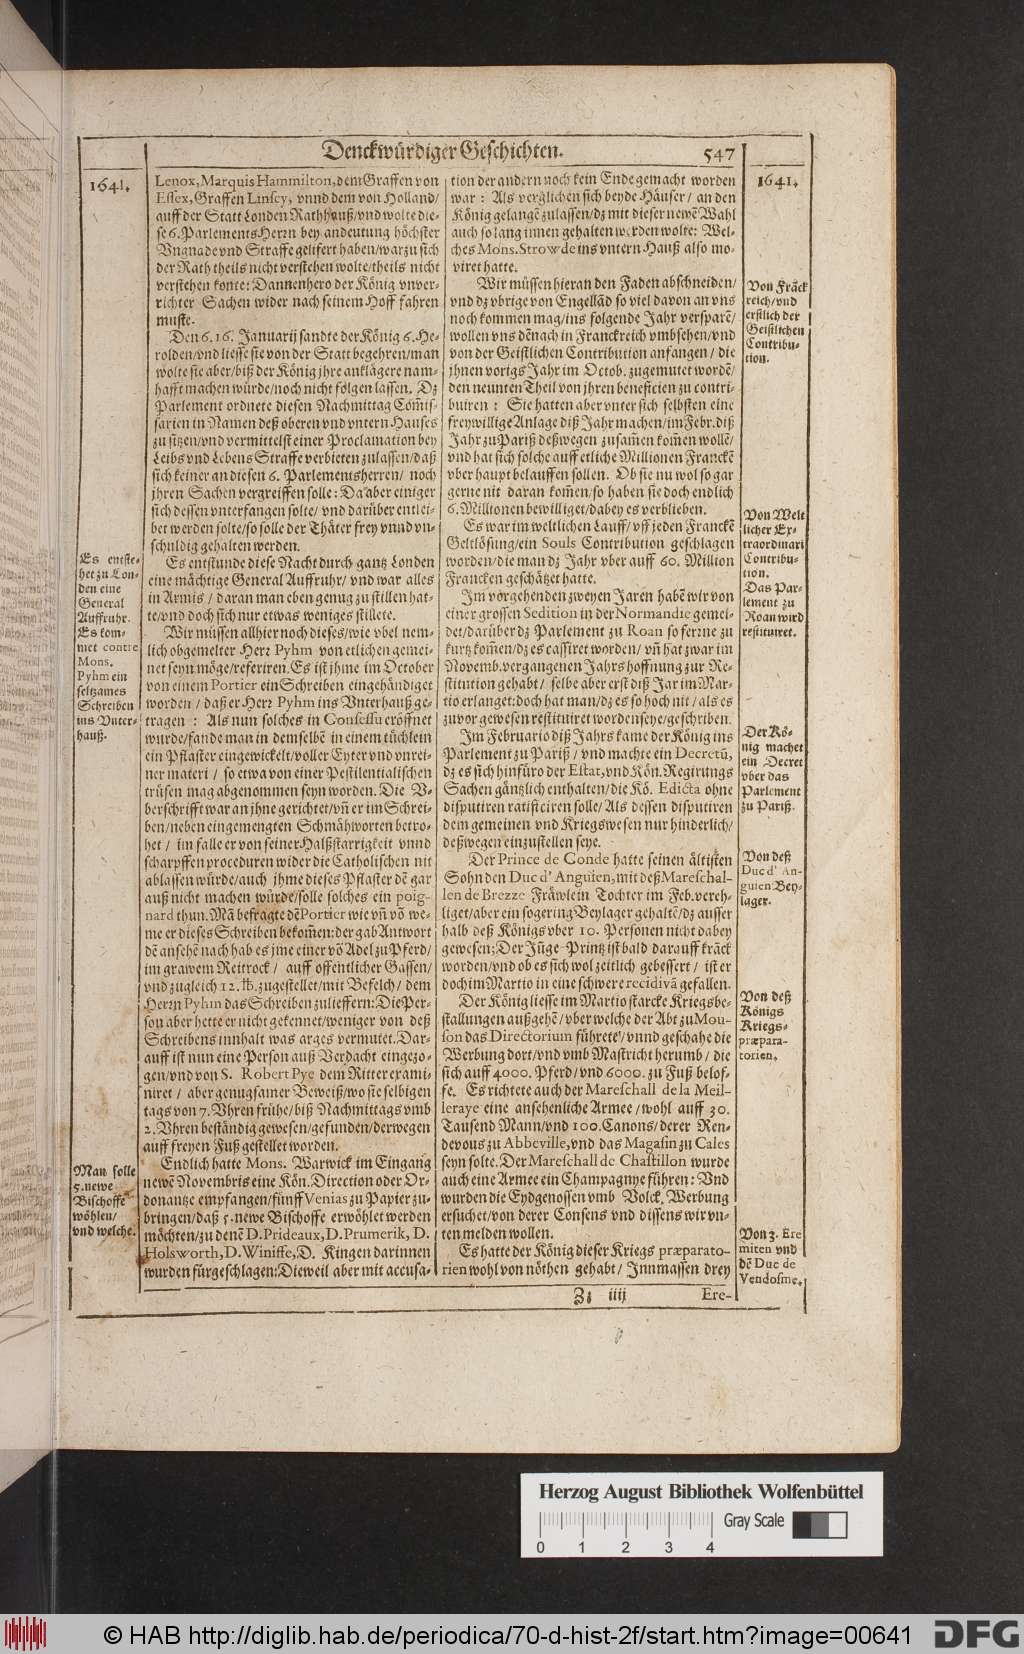 Denckwürdiger Geschichten.
547
1641.
Lenox, Marquis Hammilton, dem Graffen von
Essex, Graffen Linsey, vnnd dem von Holland/
auff der Statt Londen Rathhauß/vnd wolte die-
se 6. Parlements Herrn bey andeutung höchster
Vngnade vnd Straffe gelifert haben/warzu sich
der Rath theils nicht verstehen wolte/theils nicht
verstehen konte: Dannenhero der König vnver-
richter Sachen wider nach seinem Hoff fahren
muste.
Den 6. 16. Januarij sandte der König 6. He-
rolden/vnd liesse sie von der Statt begehren/man
wolte sie aber/biß der König jhre anklägere nam-
hafft machen würde/noch nicht folgen lassen. Dz
Parlement ordnete diesen Nachmittag Com̃is-
sarien in Namen deß oberen vnd vntern Hauses
zu sitzen/vnd vermittelst einer Proclamation bey
Leibs vnd Lebens Straffe verbieten zulassen/daß
sich keiner an diesen 6. Parlementsherren/ noch
jhren Sachen vergreiffen solle: Da aber einiger
sich dessen vnterfangen solte/ vnd darüber entlei-
bet werden solte/so solle der Thäter frey vnnd vn-
schuldig gehalten werden.
Es entstunde diese Nacht durch gantz Londen
eine mächtige General Auffruhr/ vnd war alles
in Armis / daran man eben genug zu stillen hat-
te/vnd doch sich nur etwas weniges stillete.
Wir müssen allhier noch dieses/wie vbel nem-
lich obgemelter Herr Pyhm von etlichen gemei-
net seyn möge/referiren. Es ist jhme im October
von einem Portier ein Schreiben eingehändiget
worden / daß er Herr Pyhm ins Vnterhauß ge-
tragen : Als nun solches in Consessu eröffnet
wurde/fande man in demselbē in einem tüchlein
ein Pflaster eingewickelt/voller Eyter vnd vnrei-
ner materi / so etwa von einer Pestilentialischen
trüsen mag abgenommen seyn worden. Die V-
berschrifft war an jhne gerichtet/vñ er im Schrei-
ben/neben eingemengten Schmähworten betro-
het / im falle er von seiner Halßstarrigkeit vnnd
scharpffen proceduren wider die Catholischen nit
ablassen würde/auch jhme dieses Pflaster dē gar
auß nicht machen würde/solle solches ein poig-
nard thun. Mā befragte dē Portier wie vñ vō we-
me er dieses Schreiben bekom̃en: der gab Antwort
dē ansehē nach hab es jme einer vō Adel zu Pferd/
im grawem Reitrock / auff offentlicher Gassen/
vnd zugleich 12. ℔. zugestellet/mit Befelch/ dem
Herrn Pyhm das Schreiben zulieffern: Die Per-
son aber hette er nicht gekennet/weniger von deß
Schreibens innhalt was arges vermutet. Dar-
auff ist nun eine Person auß Verdacht eingezo-
gen/vnd von S. Robert Pye dem Ritter exami-
niret / aber genugsamer Beweiß/wo sie selbigen
tags von 7. Vhren frühe/biß Nachmittags vmb
2. Vhren beständig gewesen/gefunden/derwegen
auff freyen Fuß gestellet worden.
Endlich hatte Mons. Warwick im Eingang
newē Novembris eine Kön. Direction oder Or-
donantze empfangen/fünff Venias zu Papier zu-
bringen/daß 5. newe Bischoffe erwöhlet werden
möchten/zu denē D. Prideaux, D. Prumerik, D.
Holsworth, D. Winiffe, D. Kingen darinnen
wurden fürgeschlagen: Dieweil aber mit accusa-
Es entste-
het zu Lon-
den eine
General
Auffruhr.
Es kom-
met contre
Mons.
Pyhm ein
seltzames
Schreiben
ins Vnter-
hauß.
Man solle
5. newe
Bischoffe
wöhlen/
vnd welche.
tion der andern noch kein Ende gemacht worden
war : Als verglichen sich beyde Häuser / an den
König gelangē zulassen/dz mit dieser newē Wahl
auch so lang innen gehalten werden wolte: Wel-
ches Mons. Strowde ins vntern Hauß also mo-
viret hatte.
Wir müssen hieran den Faden abschneiden/
vnd dz vbrige von Engellād so viel davon an vns
noch kommen mag/ins folgende Jahr versparē/
wollen vns dēnach in Franckreich vmbsehen/vnd
von der Geistlichen Contribution anfangen / die
jhnen vorigs Jahr im Octob. zugemutet wordē/
den neunten Theil von jhren beneficien zu contri-
buiren : Sie hatten aber vnter sich selbsten eine
freywillige Anlage diß Jahr machen/im Febr. diß
Jahr zu Pariß deßwegen zusam̃en kom̃en wollē/
vnd hat sich solche auff etliche Millionen Franckē
vber haupt belauffen sollen. Ob sie nu wol so gar
gerne nit daran kom̃en/so haben sie doch endlich
6. Millionen bewilliget/dabey es verblieben.
Es war im weltlichen Lauff/ vff jeden Franckē
Geltlösung/ein Souls Contribution geschlagen
worden/die man dz Jahr vber auff 60. Million
Francken geschätzet hatte.
Im vorgehenden zweyen Jaren habē wir von
einer grossen Sedition in der Normandie gemel-
det/darüber dz Parlement zu Roan so ferne zu
kurtz kom̃en/dz es cassiret worden/ vñ hat zwar im
Novemb. vergangenen Jahrs hoffnung zur Re-
stitution gehabt/ selbe aber erst diß Jar im Mar-
tio erlanget: doch hat man/dz es so hoch nit/als es
zuvor gewesen restituiret worden seye/geschriben.
Im Februario diß Jahrs kame der König ins
Parlement zu Pariß / vnd machte ein Decretū,
dz es sich hinfüro der Estat, vnd Kön. Regirungs
Sachen gäntzlich enthalten/die Kö. Edicta ohne
disputiren ratificiren solle/ Als dessen disputiren
dem gemeinen vnd Kriegswesen nur hinderlich/
deßwegen einzustellen seye.
Der Prince de Conde hatte seinen ältisten
Sohn den Duc d' Anguien, mit deß Mareschal-
len de Brezze Fräwlein Tochter im Feb. vereh-
liget/aber ein so gering Beylager gehaltē/dz ausser
halb deß Königs vber 10. Personen nicht dabey
gewesen: Der Jūge Printz ist bald darauff krāck
worden/vnd ob es sich wol zeitlich gebessert / ist er
doch im Martio in eine schwere recidivā gefallen.
Der König liesse im Martio starcke Kriegsbe-
stallungen außgehē/ vber welche der Abt zu Mou-
son das Directorium führete/ vnnd geschahe die
Werbung dort/vnd vmb Mastricht herumb/ die
sich auff 4000. Pferd/ vnd 6000. zu Fuß belof-
fe. Es richtete auch der Mareschall de la Meil-
leraye eine ansehenliche Armee / wohl auff 30.
Tausend Mann/vnd 100. Canons/ derer Ren-
devous zu Abbeville, vnd das Magasin zu Cales
seyn solte. Der Mareschall de Chastillon wurde
auch eine Armee ein Champagnye führen: Vnd
wurden die Eydgenossen vmb Volck, Werbung
ersuchet/von derer Consens vnd dissens wir vn-
ten melden wollen.
Es hatte der König dieser Kriegs præparato-
rien wohl von nöthen gehabt/ Innmassen drey
Zz iiij
Ere-
1641.
Von Frāck
reich/vnd
erstlich der
Geistlichen
Contribu-
tion.
Von Welt
licher Ex-
traordinari
Contribu-
tion.
Das Par-
lement zu
Roan wird
restituiret.
Der Kö-
nig machet
ein Decret
vber das
Parlement
zu Pariß.
Von deß
Duc d' An-
guien Bey-
lager.
Von deß
Königs
Kriegs-
præpara-
torien.
Von 3. Ere
miten vnd
dē Duc de
Vendosme.
Herzog August Bibliothek Wolfenbüttel
Gray Scale
0 1 2 3 4
© HAB http://diglib.hab.de/periodica/70-d-hist-2f/start.htm?image=00641
DFG